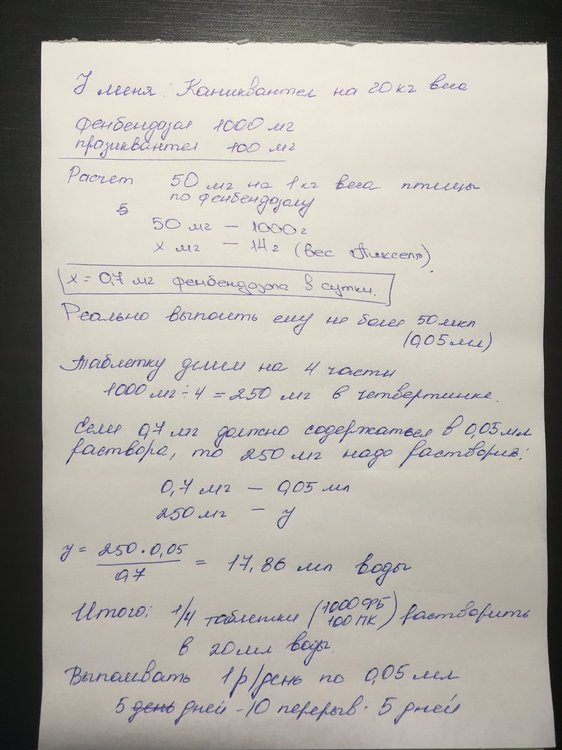 У меня: Каниквантел на 20 кг веса
Фенбендазол 1000 мг
празиквантел 100 мг
Расчет 50 мг на 1 кг веса птицы
по фенбендазолу
50 мг – 1000 г
х мг – 14 г (вес Пиксель)
х = 0,7 мг фенбендазола в сутки.
Реально выпоить ему не более 50 мкл
(0,05 мл)
Таблетку делим на 4 части
1000 мг ÷ 4 = 250 мг в четвертинке.
Если 0,7 мг должно содержаться в 0,05 мл
раствора, то 250 мг надо растворить:
0,7 мг – 0,05 мл
250 мг – у
у = 250 · 0,05 / 0,7 = 17,86 мл воды
Итого: 1/4 таблетки (1000 ФБ 100 ПК) растворить
в 20 мл воды.
Выпаивать 1 р/день по 0,05 мл
5 день дней – 10 перерыв · 5 дней